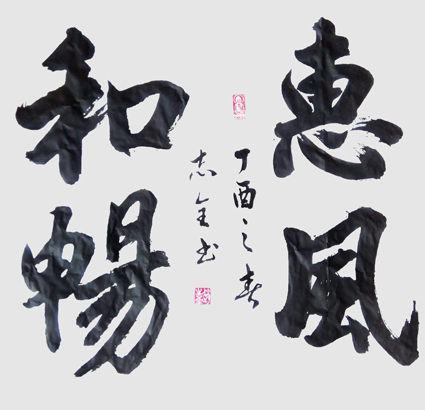 惠風
和暢
丁酉之春
志全书